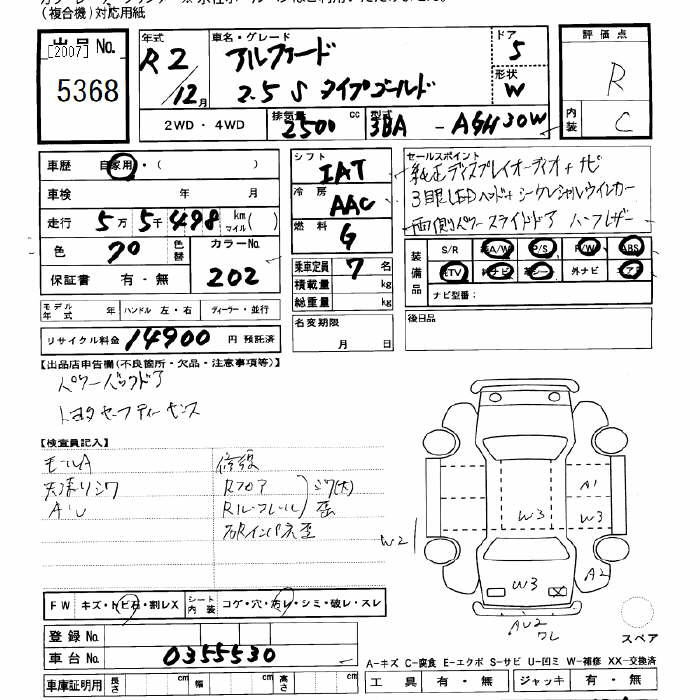 (複合機)対応用紙
出品 No.
[2007]
5368
年式
R2/12月
車名・グレード
アルファード
2.5 S タイプゴールド
ドア
5
形状
W
評価点
R
内装
C
2WD・4WD
排気量
2500 cc
型式
3BA - AGH30W
車歴 自家用・( )
車検 年 月
走行 5万5千498 km マイル( )
色 ブロ 色替 カラーNo. 202
保証書 有・無
シフト IAT
冷房 AAC
燃料 G
乗車定員 7 名
積載量 kg
総重量 kg
名変期限
月 日
セールスポイント
純正ディスプレイオーディオ+ナビ
3眼LEDヘッド+シーケンシャルウインカー
両側パワースライドドア ハーフレザー
装備品
S/R A/W P/S P/W ABS
TV ナビ 革シート 外ナビ エアB
ナビ型番:
後日品
モデル年式 年 ハンドル 左・右 ディーラー・並行
リサイクル料金 14900 円 預託済
【出品店申告欄(不良箇所・欠品・注意事項等)】
パワーバックドア
トヨタセーフティーセンス
【検査員記入】
モールA
天張りシワ
A'U
修復
Rフロア
Rルーフレール
シワ(大)
歪
左Rインパネ歪
A1
W3
W3
W2
W3
A2
AU2
ワレ
スペア
FW キズ・トビ石・割レX シート内装 コゲ・穴・汚レ・シミ・破レ・スレ
登録 No.
車台 No. 0355530
車庫証明用 長さ 幅 高さ
A-キズ C-腐食 E-エクボ S-サビ U-凹ミ W-補修 XX-交換済
工具 有・無 ジャッキ 有・無